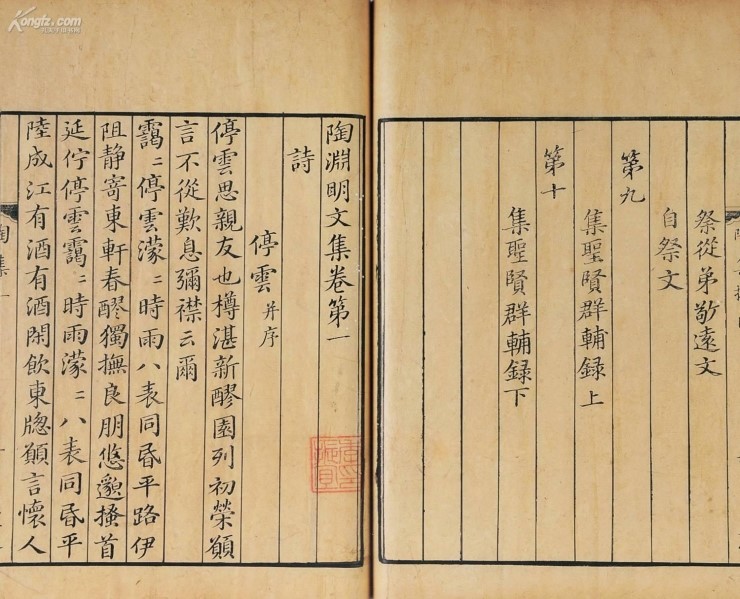 Kongfz.com
祭從弟敬遠文
自祭文
第九
集聖賢群輔録上
第十
集聖賢群輔録下
陶淵明文集卷第一
詩
停雲并序
停雲思親友也樽湛新醪園列初榮願
言不從歎息彌襟云爾
靄〻停雲濛〻時雨八表同昏平路伊
阻静寄東軒春醪獨撫良朋悠邈搔首
延佇停雲靄〻時雨濛〻八表同昏平
陸成江有酒有酒閑飲東牎願言懷人
陶集一